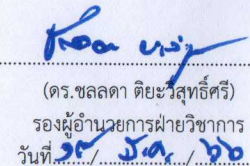 (ดร.ชลลดา ติยะวิสุทธิ์ศรี)
รองผู้อำนวยการฝ่ายวิชาการ
วันที่ ๑๙ / มี.ค. / ๖๖